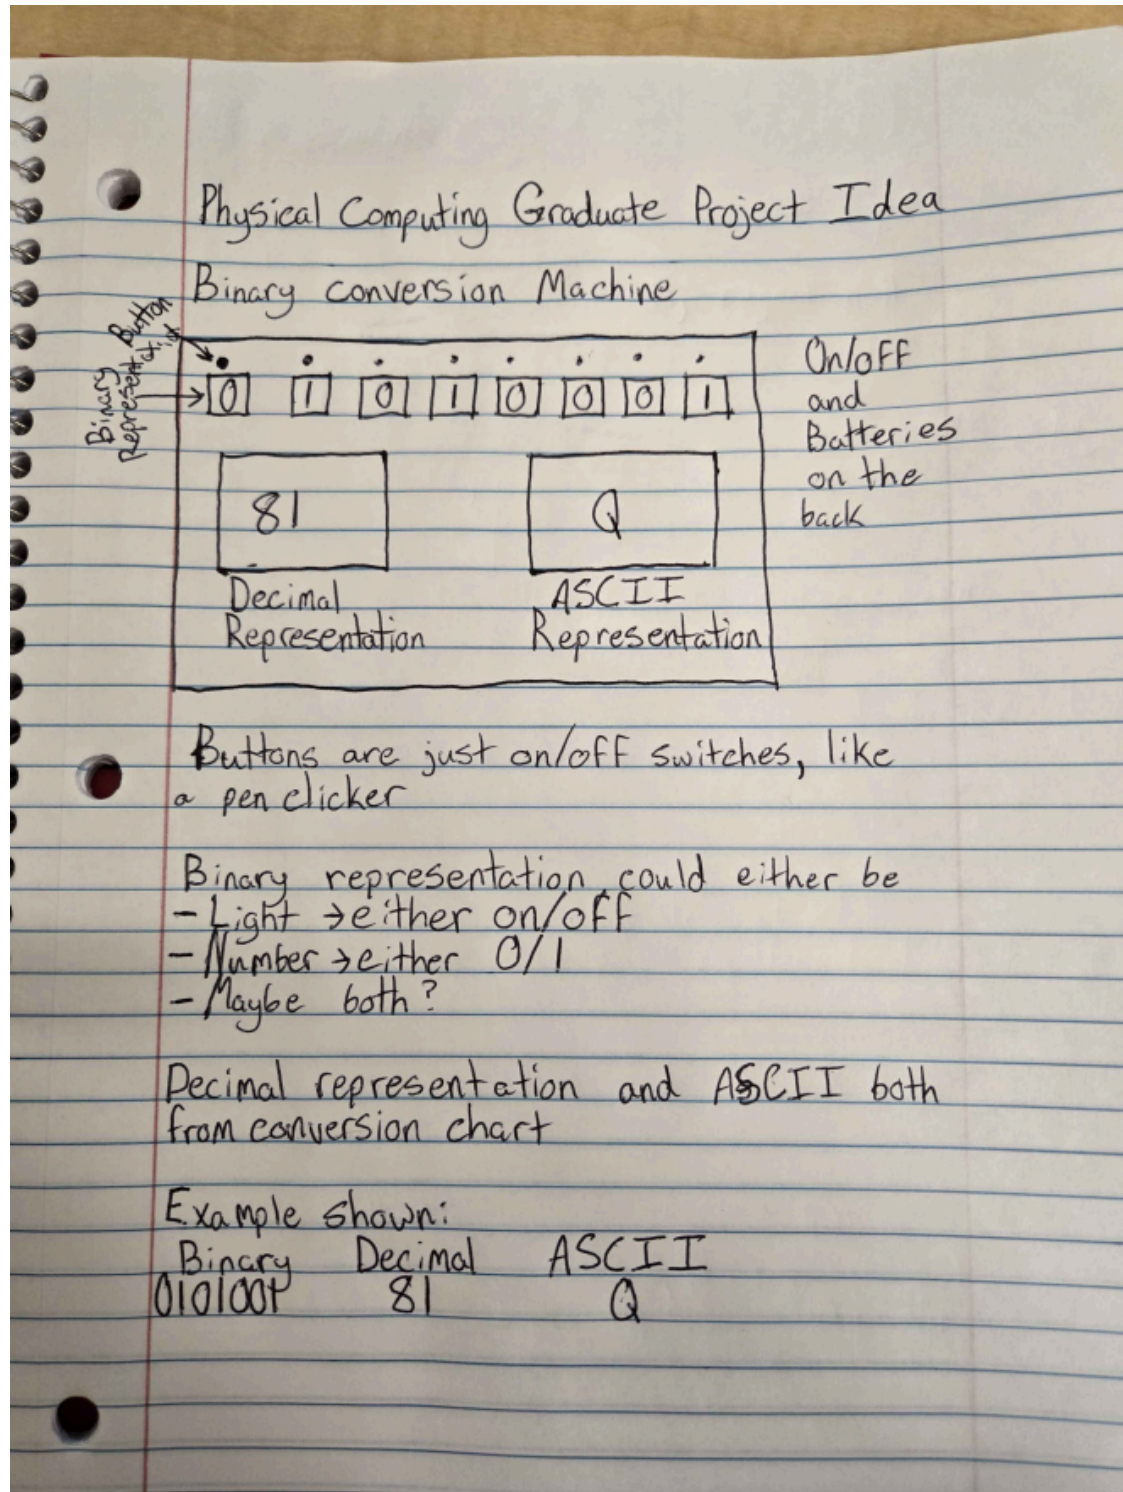 Physical Computing Graduate Project Idea
Binary conversion Machine
Button
Binary Representation
0 1 0 1 0 0 0 1
81
Q
Decimal Representation
ASCII Representation
On/off
and
Batteries
on the
back
Buttons are just on/off switches, like
a pen clicker
Binary representation could either be
- Light → either on/off
- Number → either 0/1
- Maybe both?
Decimal representation and ASCII both
from conversion chart
Example shown:
Binary Decimal ASCII
01010001 81 Q